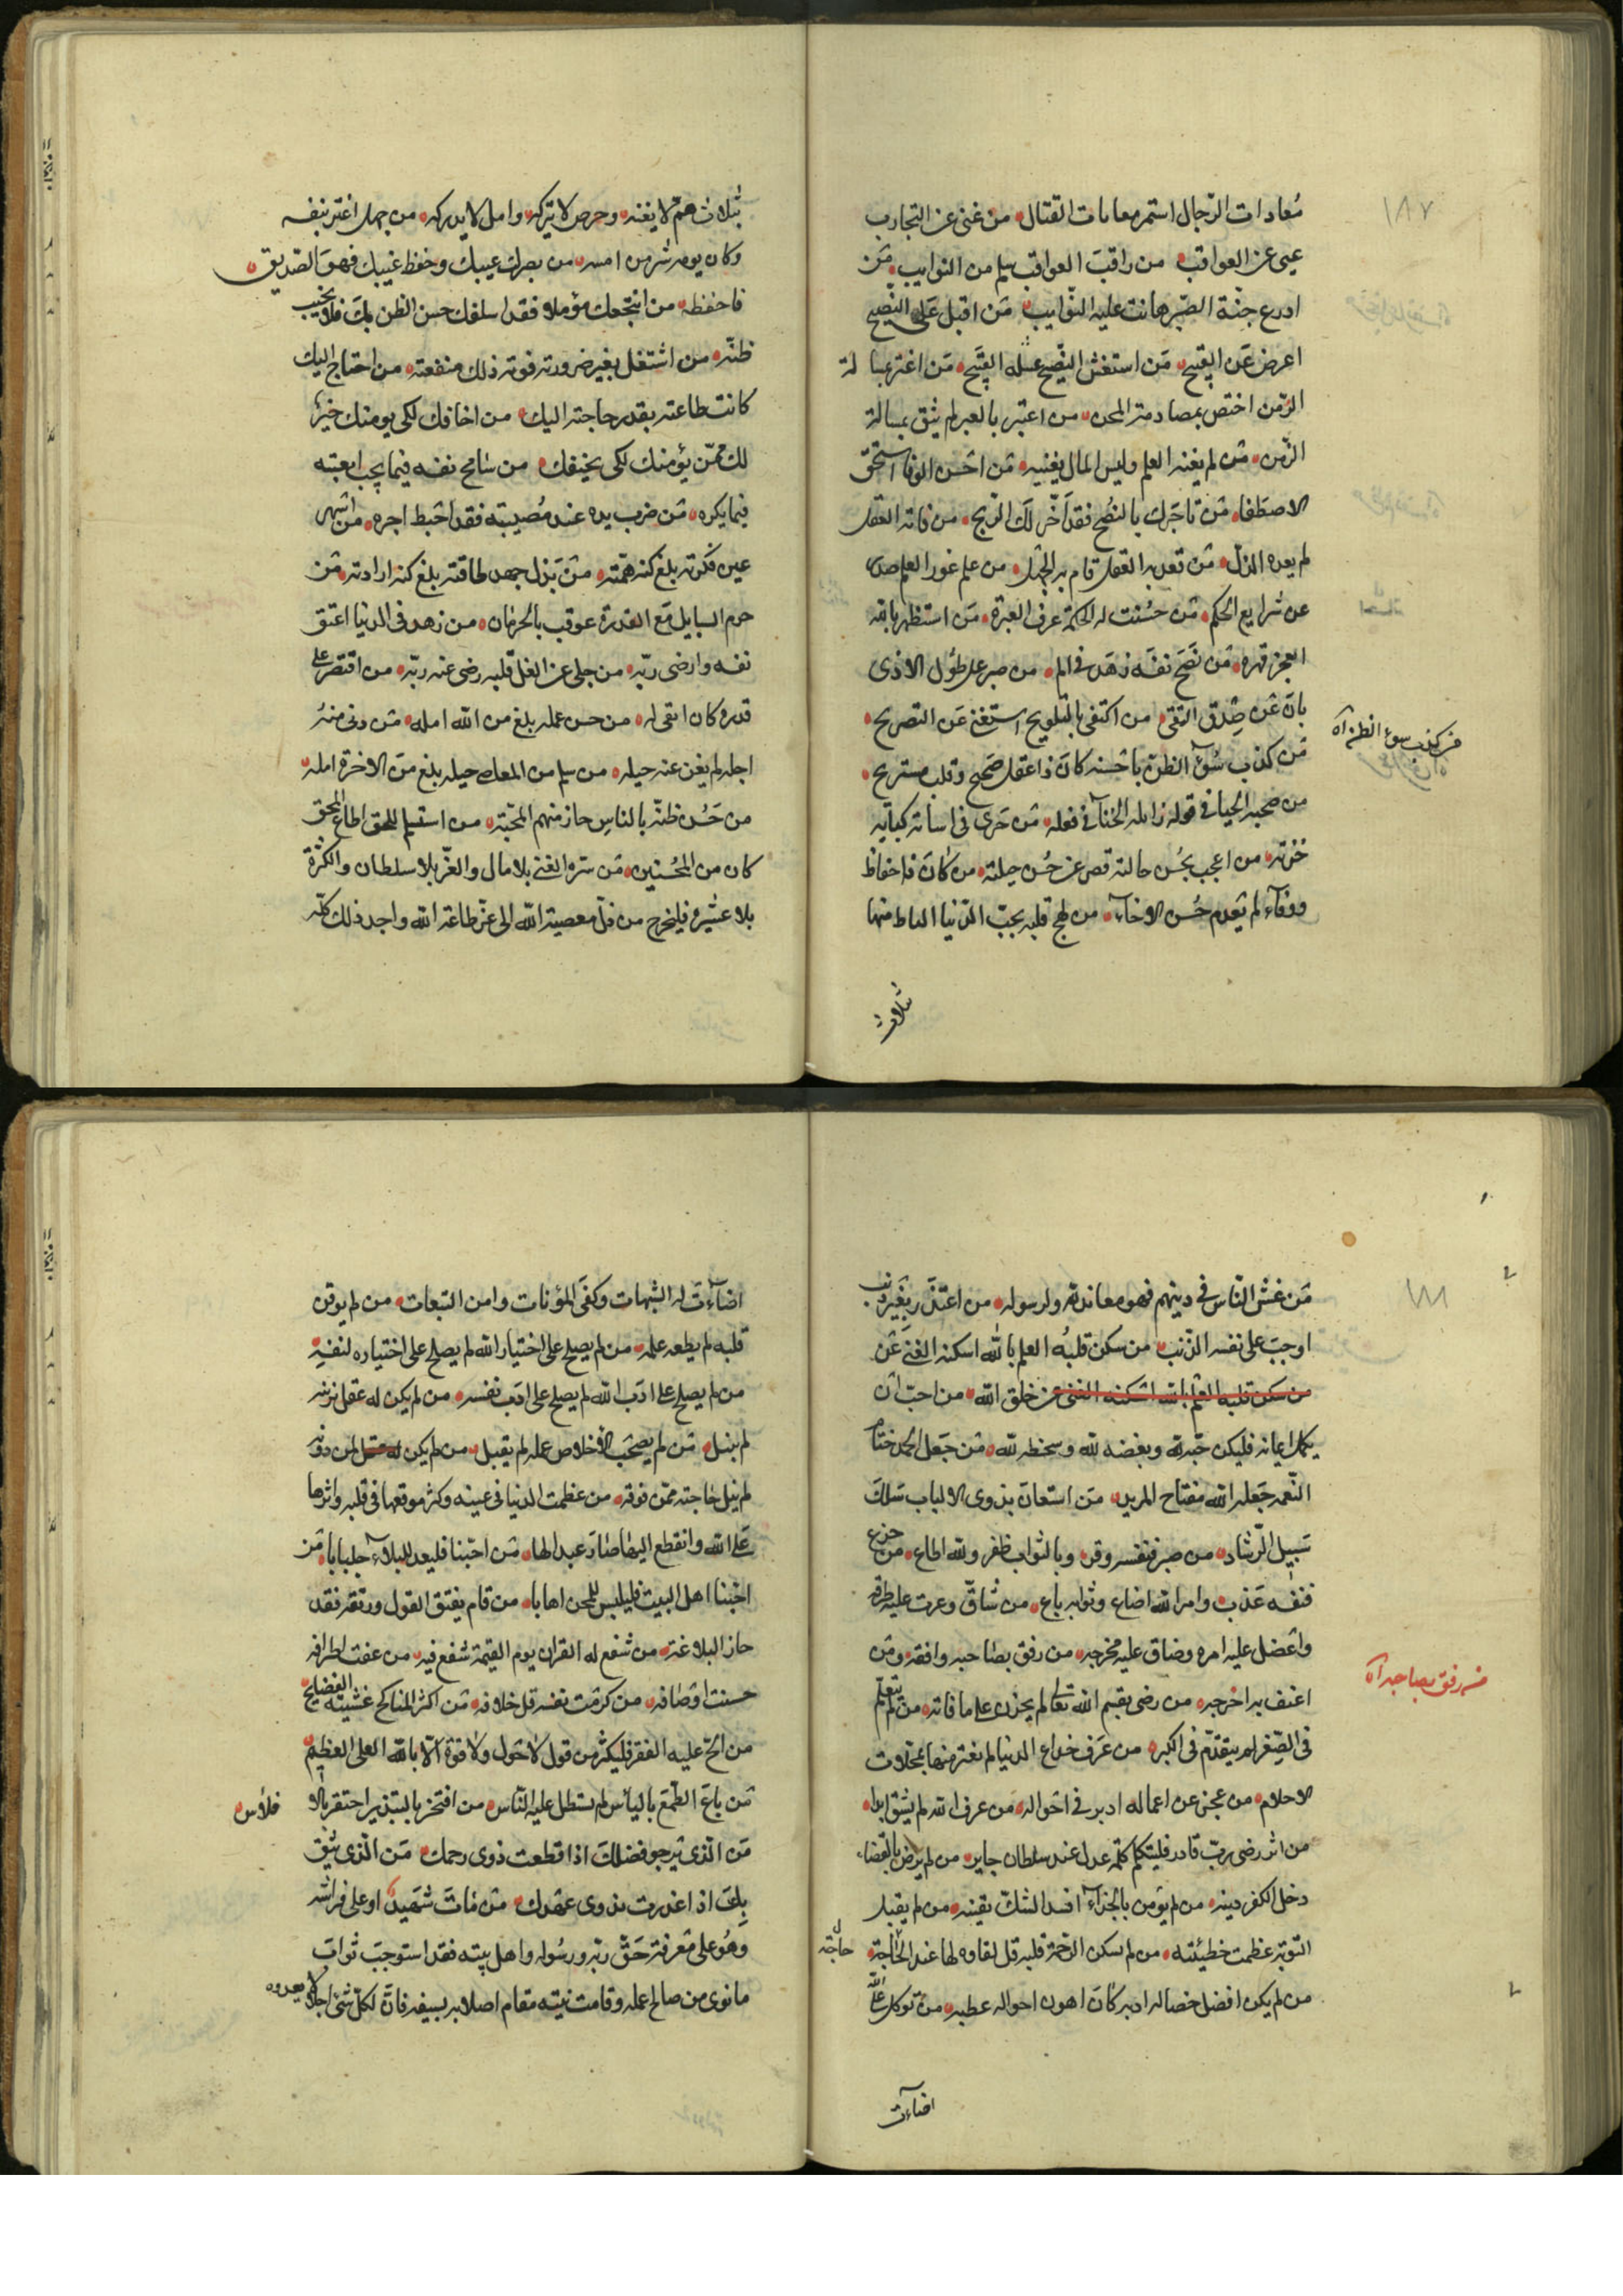 ١٨٧
مُعادات الرّجال استمر معامات القتال من غنى عن التجارب
عمى عن العواقب من راقبَ العواقب سلم من النوايب مَن
ادرع جنّة الصّبر هانت عليه النّوايب مَن اقبل عَلى النّصيح
اعرض عَن القبيح مَن استغش النّصيح غشله القبيح مَن اغتر بمسالمة
الزّمن اختص بمصادمة المحن من اعتبر بالعبر لم يثق بمسالمة
الزّمن من لم يغنه العلم وليس المال يغنيه مَن احسَن الوفا استحقّ
الاصطفا مَن تاجرك بالنُصح فقد اخّر لَك الرّبح من فاته العقل
لم يعده الذل مَن قعد به العقل قام به الجهل من علم غور العلم صدر
عن شرايع الحكم مَن حسُنت له الحكمة عرف العبرة مَن استظهر بالله
اعجز قهره مَن نصَح نفسَه زهد فى الم من صبر على طوُل الاذى
بانَ عَن صِدق التقى من اكتفى بالتلويح استغنى عَن التصريح
مَن كذب سُوء الظنّ باخيه كانَ ذا عقل صَحيح وقلب مستريح
من كذب سوء الظن آه
من صحبه الحيا فى قوله زايله الخنآ فى فعله مَن جَرى فى اسائه كبابه
خزيه من اعجب بحُسن حالته قصر عن حُسن حيلته من كانَ ذا حفاظ
ووفآء لم تعدم حُسن الاخآء من لهج قلبه بحبّ الدّنيا التاط منها
ثلاث
بثلاث همّ لا يغنه وحرص لا يتركه وامل لا يدركه من جهل اغتر بنفسه
وكان يومه شر من امسه من بصرك عيبك وحفظ غيبك فهوَ الصّديق
فاحفظه من انتجعك مؤملا فقد اسلفك حسن الظن بك فلا تخيب
ظنّه من اشتغل بغير ضرورته فوته ذلك منفعته من احتاج اليك
كانت طاعته بقدر حاجته اليك من اخافك لكى يومنك خيرٌ
لك ممّن يؤمنك لكى يخيفك من سامح نفسه فيما يحب اتعبته
فيما يكره مَن ضرب يده عند مُصيبته فقد احبَط اجره من اسهر
عين فكرته بلغ كنه همّته مَن بَذل جهد طاقته بلغ كنه ارادته مَن
حرم السايل مَع القدرة عوقب بالحرمان من زهد فى الدنيا اعتق
نفسه وارضى ربّه من جلى عن الغل قلبه رضى عنه ربّه من اقتصر على
قدره كان ابقى له من حسن عمله بلغ من الله امله مَن دنى منهُ
اجله لم يغن عنه حيله من سلم من المعاصى حيله بلغ مَن الاخرة امله
من حَسُن ظنّه بالناسِ حاز منهم المحبّة من استسلم للحق اطاع المحق
كان من المُحسنين مَن سرّه الغنى بلا مال والعزّ بلا سلطان والكثرة
بلا عشيرة فليخرج من ذلّ معصية الله الى عزّ طاعة الله واجد ذلك كلّه
١٨٨
مَن غشّ النّاس فى دينهم فهو معاند لله ولرسوله من اعتذَر بِغَير ذنب
اوجبَ على نفسه الذّنب من سكن قلبهُ العلم بالله اسكنه الغنى عَن
من سكن قلبه العلم بالله اسكنه الغنى عن خلق الله من احبّ ان
يكمل ايمانه فليكن حبّه لله وبغضه لله وسخطه لله مَن جَعل الحمد ختام
النّعمه جَعله الله مفتاح المزيد مَن استعانَ بذوى الالباب سَلكَ
سَبيل الرّشاد من صبر فنفسه وقر وبالثواب ظفر ولله اطاع من جزع
فنفسه عَذب وامر الله اضاع وثوابه باع من شاقّ وعرت عليه طرقه
واعضل عليه امره وضاق عليه مخرجه من رفق بصاحبه وافقه ومَن
من رفق بصاحبه آه
اعنف به اخرجه من رضى بقسم الله تعالى لم يحزن على ما فاته من لم يتعلّم
فى الصّغر لم يتقدّم فى الكبر من عَرف خداع الدنيا لم يغتر منها بمحلات
الاحلام من عجز عن اعماله ادبر فى احَواله مَن عرف الله لم يشق ابدا
من اثر رضى ربّ قادر فليتكلم كلمة عدل عند سلطان جاير من لم يرض بالقضاء
دخل الكفر دينه من لم يؤمن بالجزآء افسد الشكّ يقينه من لم يقبل
التوبة عظمت خطيئته من لم تسكن الرّحمة قلبه قل لقاوه لها عند الحَاجة
حاجته
من لم يكن افضل خصاله ادبه كانَ اهون احواله عطبه من توكل على الله
اضاءت
اضآءت له الشبهات وكفىَ المؤنات وامن التبعات من لم يوقن
قلبه لم يطعه عمله من لم يصلح على اختيار الله لم يصلح على اختياره لنفسِه
من لم يصلح على ادَب الله لم يصلح على ادَب نفسه من لم يكن له عقل يزينه
لم ينبل مَن لم يصحَب الأخلاص عمله لم يقبل من لم يكن له عقل لمن دونه
لم ينل حَاجته ممّن فوقه من عظمت الدنيا فى عينه وكثر موقعها فى قلبه واثرها
عَلى الله وانقطع اليها صَارَ عبدا لها مَن احبّنا فليعد للبلاء جلبابا مَن
احبّنا اهل البيت فليلبس للمحن اهابا من قام بفتق القول ورتقه فقد
حاز البلاغة من شفع له القران يوم القيمة شفع فيه من عفت اطرافه
حسنت اوصَافه من كرمَت نفسه قل خلافه مَن اكثر المناكح غشيته الفضايح
من الحّ عليه الفقر فليكثر من قول لا حَول ولا قوة الّا بالله العلى العظيم
مَن باعَ الطّمَع بالياْس لم يستطل عليه النّاس من افتخر بالتبذير احتقر بالا
فلاس
مَن الّذى يَرجو فضلكَ اذا قطعت ذوى رحمك مَن الّذى يثق
بِكَ اذا غدرت بذوى عهدك مَن مَاتَ شهيدا او على فراشه
وهُو على مَعرفة حَقّ ربّه ورسُوله واهل بيته فقد استوجبَ ثوابَ
مانوى من صالح عمله وقامت نيّته مقام اصلابه بسيفه فانَّ لكلّ شىْ اجلا لا يعدوه